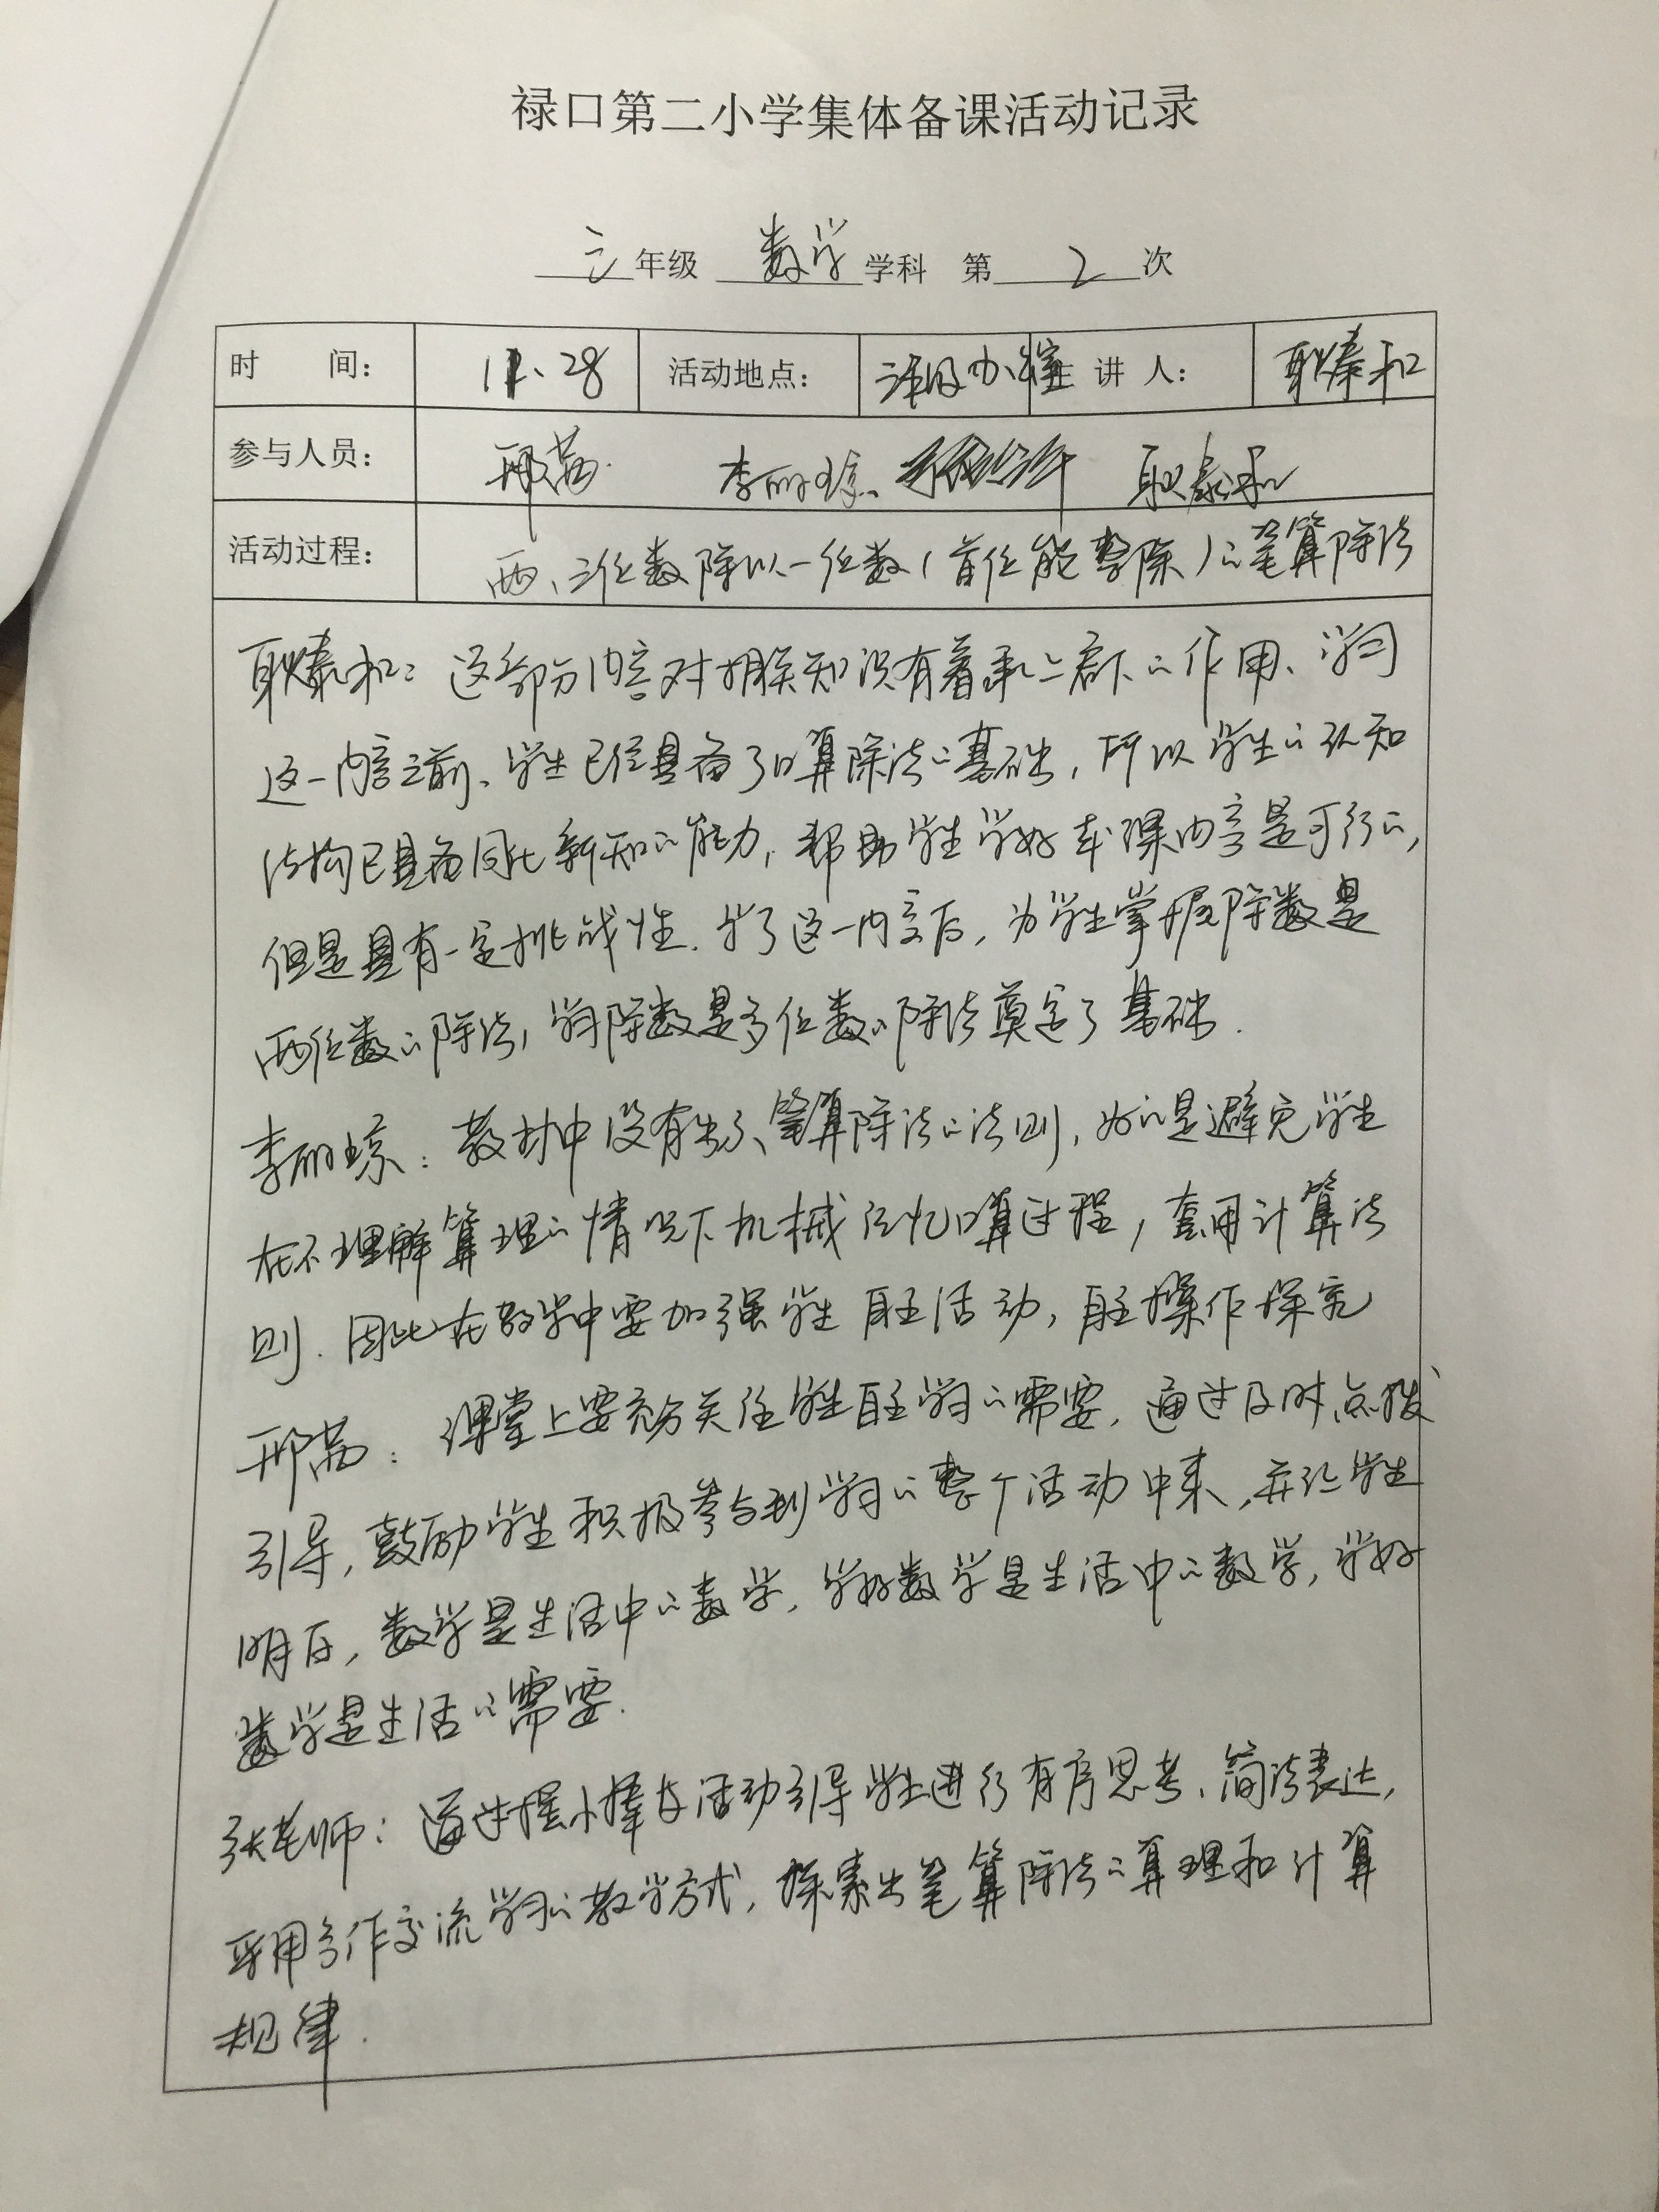 禄口第二小学集体备课活动记录
三年级 数学 学科 第 2 次
时 间: 11.28 活动地点: 办 主 讲 人: 耿泰和
参与人员: 邢荔. 李丽琼、 耿泰和
活动过程: 两、三位数除以一位数(首位能整除)的笔算除法
耿泰和: 这部分内容对相关知识有着承上启下的作用、学习
这一内容之前、学生已经具备了口算除法的基础, 所以学生的认知
结构已具备同化新知的能力, 帮助学生学好本课内容是可行的,
但是具有一定挑战性. 学了这一内容后, 为学生掌握除数是
两位数的除法, 学习除数是多位数的除法奠定了基础.
李丽琼: 教材中没有出示笔算除法的法则, 为的是避免学生
在不理解算理的情况下机械记忆口算过程, 套用计算法
则. 因此在教学中要加强学生自主活动, 自主操作探究
邢荔: 课堂上要充分关注学生自主学习的需要, 通过及时点拨
引导, 鼓励学生积极参与到学习的整个活动中来, 并让学生
明白, 数学是生活中的数学, 学好数学是生活中的数学, 学好
数学是生活的需要.
张老师: 通过摆小棒等活动引导学生进行有序思考、简洁表达,
采用合作交流学习的教学方式, 探索出笔算除法的算理和计算
规律.